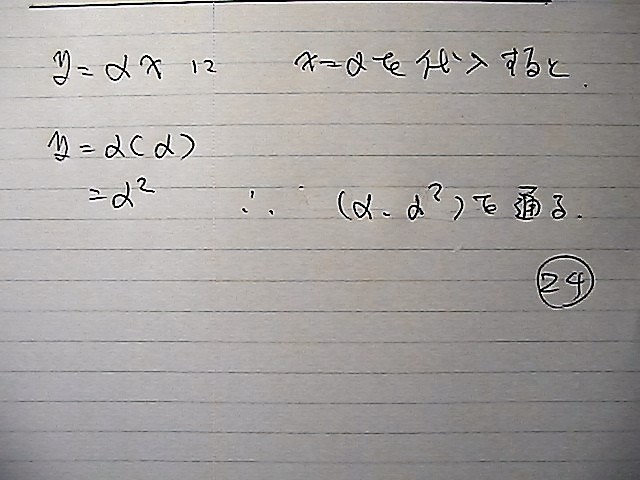 y = αx に x=αを代入すると.
y = α(α)
= α²  ∴ (α、α²)を通る.
24